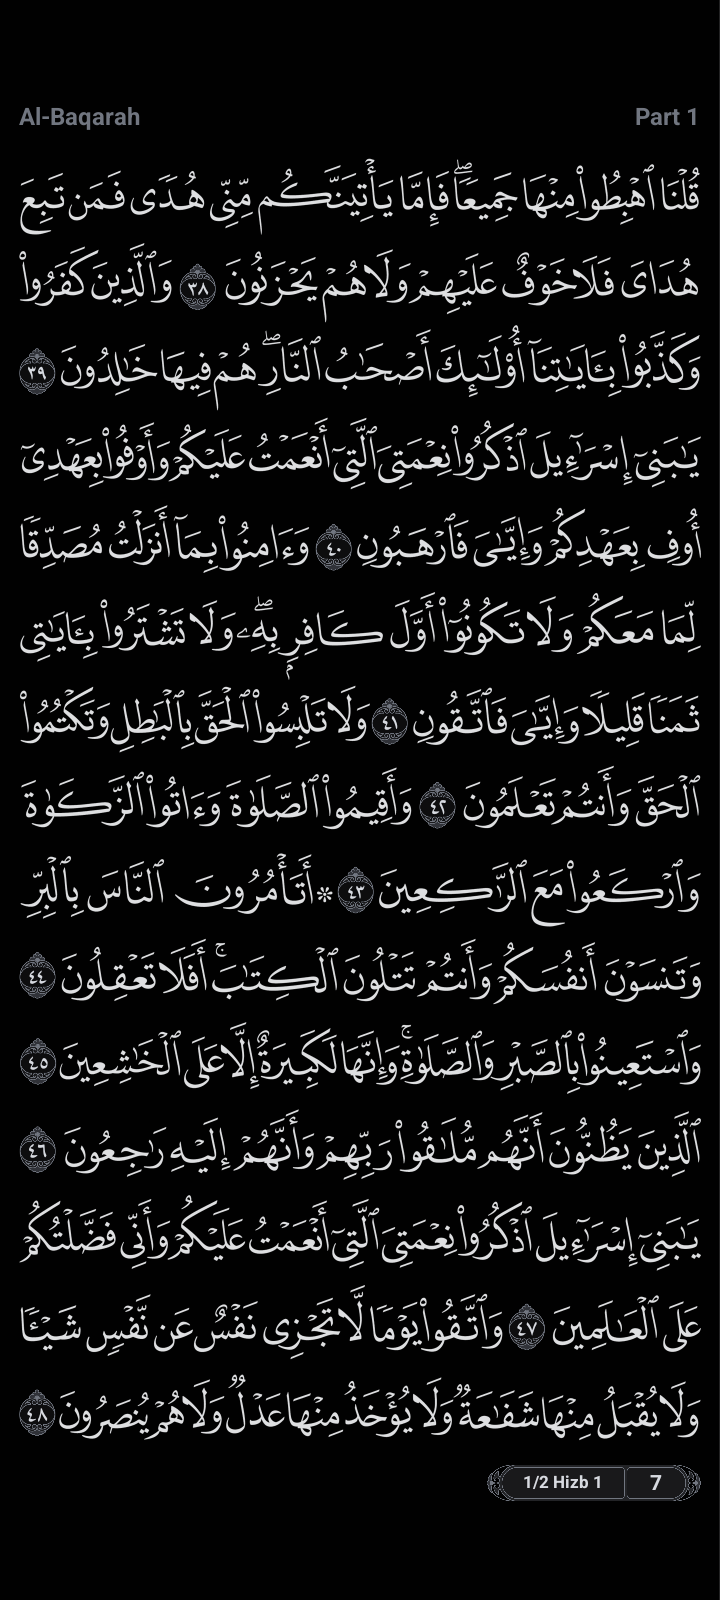 Al-Baqarah Part 1
قُلْنَا ٱهْبِطُوا۟ مِنْهَا جَمِيعًۭا ۖ فَإِمَّا يَأْتِيَنَّكُم مِّنِّى هُدًۭى فَمَن تَبِعَ
هُدَاىَ فَلَا خَوْفٌ عَلَيْهِمْ وَلَا هُمْ يَحْزَنُونَ ٣٨ وَٱلَّذِينَ كَفَرُوا۟
وَكَذَّبُوا۟ بِـَٔايَـٰتِنَآ أُو۟لَـٰٓئِكَ أَصْحَـٰبُ ٱلنَّارِ ۖ هُمْ فِيهَا خَـٰلِدُونَ ٣٩
يَـٰبَنِىٓ إِسْرَٰٓءِيلَ ٱذْكُرُوا۟ نِعْمَتِىَ ٱلَّتِىٓ أَنْعَمْتُ عَلَيْكُمْ وَأَوْفُوا۟ بِعَهْدِىٓ
أُوفِ بِعَهْدِكُمْ وَإِيَّـٰىَ فَٱرْهَبُونِ ٤٠ وَءَامِنُوا۟ بِمَآ أَنزَلْتُ مُصَدِّقًۭا
لِّمَا مَعَكُمْ وَلَا تَكُونُوٓا۟ أَوَّلَ كَافِرٍۭ بِهِۦ ۖ وَلَا تَشْتَرُوا۟ بِـَٔايَـٰتِى
ثَمَنًۭا قَلِيلًۭا وَإِيَّـٰىَ فَٱتَّقُونِ ٤١ وَلَا تَلْبِسُوا۟ ٱلْحَقَّ بِٱلْبَـٰطِلِ وَتَكْتُمُوا۟
ٱلْحَقَّ وَأَنتُمْ تَعْلَمُونَ ٤٢ وَأَقِيمُوا۟ ٱلصَّلَوٰةَ وَءَاتُوا۟ ٱلزَّكَوٰةَ
وَٱرْكَعُوا۟ مَعَ ٱلرَّٰكِعِينَ ٤٣ ۞ أَتَأْمُرُونَ ٱلنَّاسَ بِٱلْبِرِّ
وَتَنسَوْنَ أَنفُسَكُمْ وَأَنتُمْ تَتْلُونَ ٱلْكِتَـٰبَ ۚ أَفَلَا تَعْقِلُونَ ٤٤
وَٱسْتَعِينُوا۟ بِٱلصَّبْرِ وَٱلصَّلَوٰةِ ۚ وَإِنَّهَا لَكَبِيرَةٌ إِلَّا عَلَى ٱلْخَـٰشِعِينَ ٤٥
ٱلَّذِينَ يَظُنُّونَ أَنَّهُم مُّلَـٰقُوا۟ رَبِّهِمْ وَأَنَّهُمْ إِلَيْهِ رَٰجِعُونَ ٤٦
يَـٰبَنِىٓ إِسْرَٰٓءِيلَ ٱذْكُرُوا۟ نِعْمَتِىَ ٱلَّتِىٓ أَنْعَمْتُ عَلَيْكُمْ وَأَنِّى فَضَّلْتُكُمْ
عَلَى ٱلْعَـٰلَمِينَ ٤٧ وَٱتَّقُوا۟ يَوْمًۭا لَّا تَجْزِى نَفْسٌ عَن نَّفْسٍۢ شَيْـًۭٔا
وَلَا يُقْبَلُ مِنْهَا شَفَـٰعَةٌۭ وَلَا يُؤْخَذُ مِنْهَا عَدْلٌۭ وَلَا هُمْ يُنصَرُونَ ٤٨
1/2 Hizb 1 7